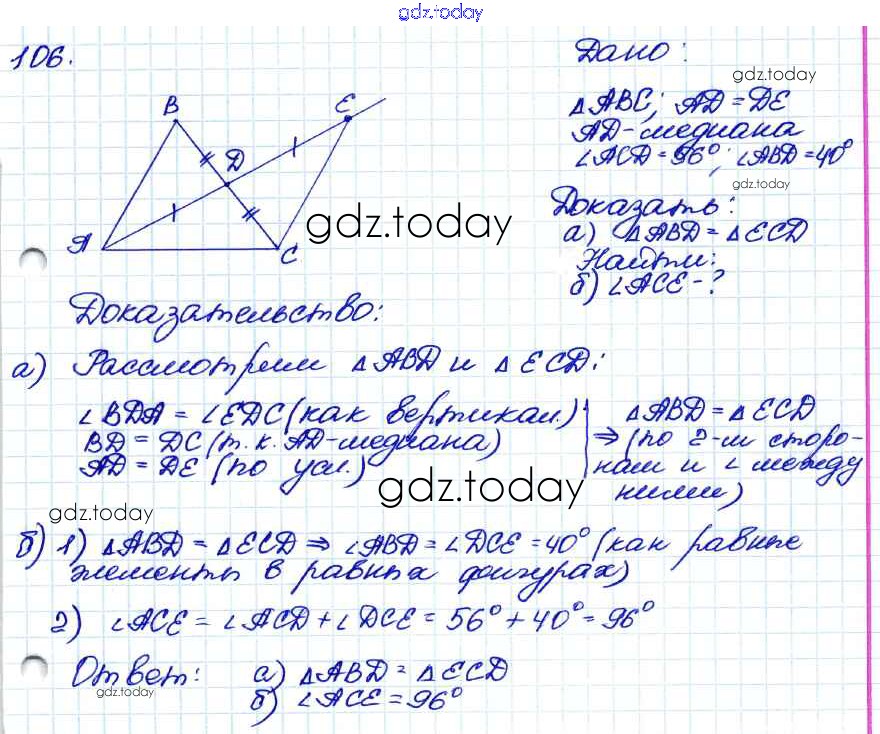 gdz.today
106.
Дано:
gdz.today
△ABC; AD = DE
AD-медиана
∠ACD = 56°; ∠ABD = 40°
gdz.today
Доказать:
а) △ABD = △ECD
Найти:
б) ∠ACE - ?
B
E
D
A
C
gdz.today
Доказательство:
а) Рассмотрим △ABD и △ECD:
∠BDA = ∠EDC (как вертикал.)
BD = DC (т.к. AD-медиана)
AD = DE (по усл.)
△ABD = △ECD
⇒ (по 2-м сторо-
нам и ∠ между
ними)
gdz.today
gdz.today
б) 1) △ABD = △ECD ⇒ ∠ABD = ∠DCE = 40° (как равные
элементы в равных фигурах)
2) ∠ACE = ∠ACD + ∠DCE = 56° + 40° = 96°
Ответ: а) △ABD = △ECD
gdz.today
б) ∠ACE = 96°